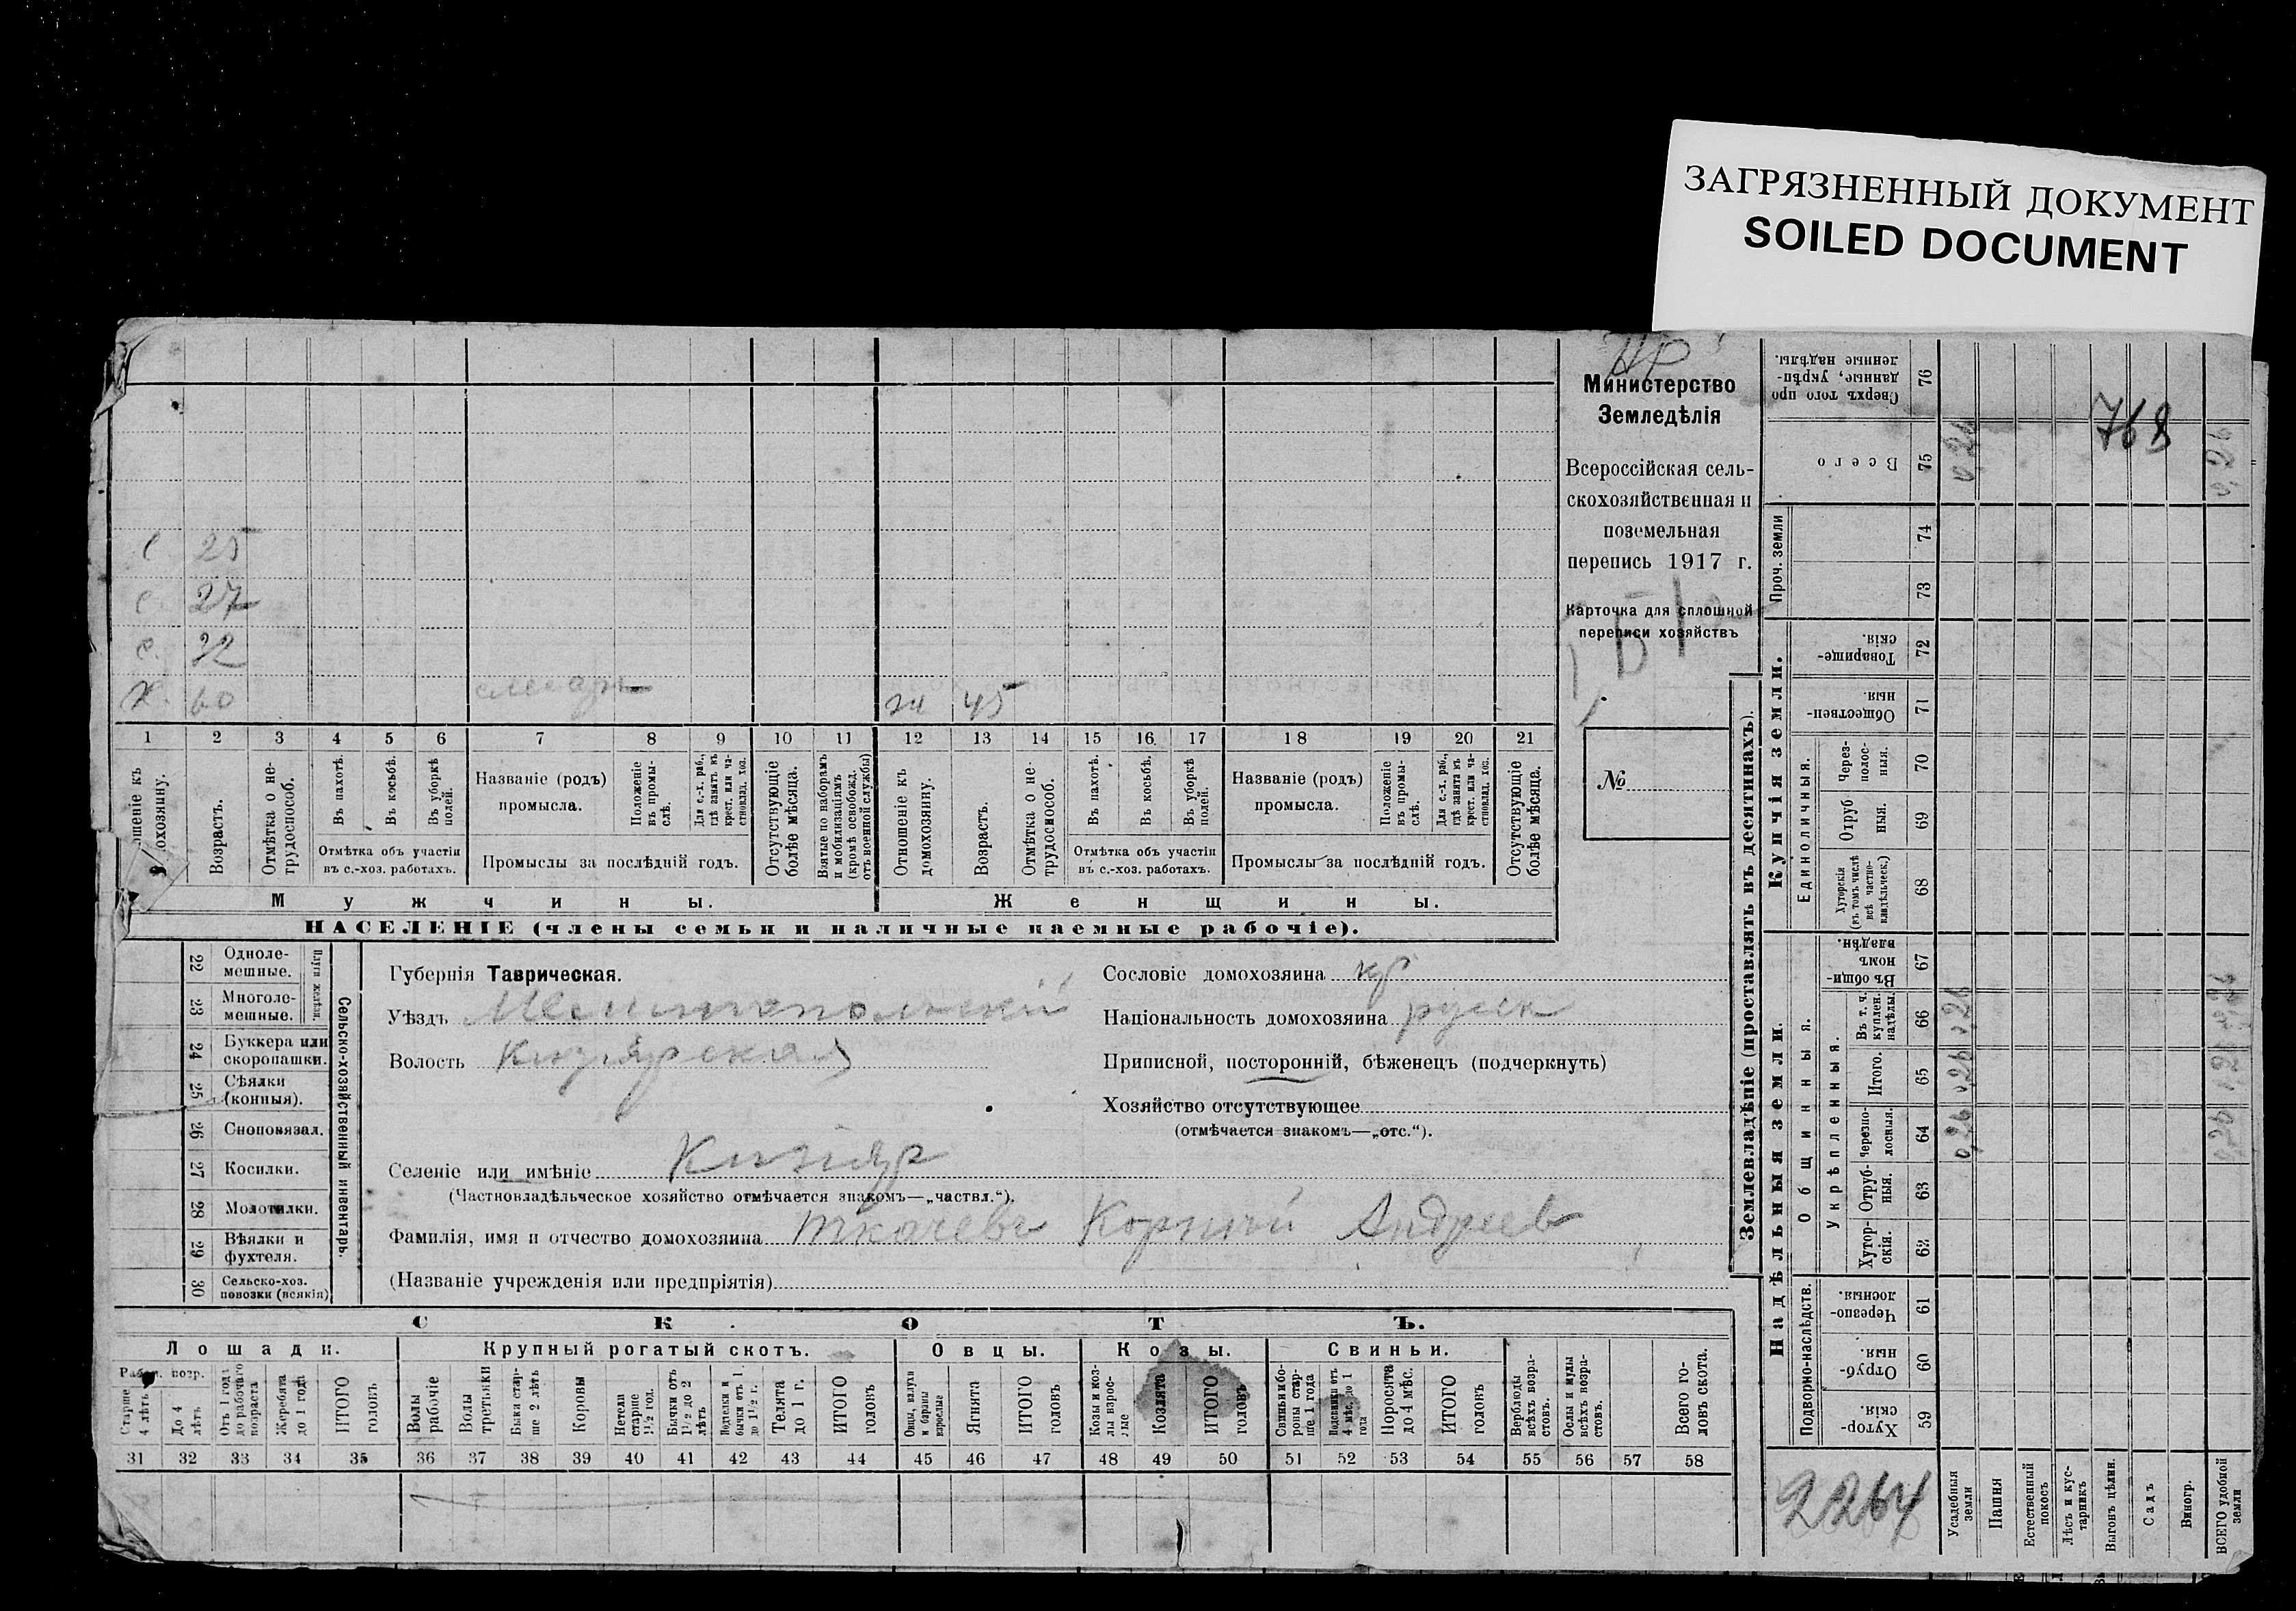 ЗАГРЯЗНЕННЫЙ ДОКУМЕНТ
SOILED DOCUMENT
Министерство
Земледѣлія
Всероссійская сель-
скохозяйственная и
поземельная
перепись 1917 г.
Карточка для сплошной
переписи хозяйствъ
№
с 25
с 27
с. 32
Х. 60 45
1 2 3 4 5 6 7 8 9 10 11 12 13 14 15 16 17 18 19 20 21
Возрастъ.
Отмѣтка о не-
трудоспособ.
Въ пахотѣ.
Въ косьбѣ.
Въ уборкѣ
полей.
Отмѣтка объ участіи
въ с.-хоз. работахъ.
Названіе (родъ)
промысла.
Положеніе
въ промы-
слѣ.
Для с.-х. раб.,
гдѣ занятъ въ
крест. или ча-
стновлад. хоз.
Промыслы за послѣдній годъ.
Отсутствующіе
болѣе мѣсяца.
Взятые по наборамъ
и мобилизаціямъ
(кромѣ освобожд.
отъ военной службы)
Отношеніе къ
домохозяину.
Возрастъ.
Отмѣтка о не-
трудоспособ.
Въ пахотѣ.
Въ косьбѣ.
Въ уборкѣ
полей.
Отмѣтка объ участіи
въ с.-хоз. работахъ.
Названіе (родъ)
промысла.
Положеніе
въ промы-
слѣ.
Для с.-х. раб.,
гдѣ занята въ
крест. или ча-
стновлад. хоз.
Промыслы за послѣдній годъ.
Отсутствующіе
болѣе мѣсяца.
Мужчины. Женщины.
НАСЕЛЕНІЕ (члены семьи и наличные наемные рабочіе).
Сельско-хозяйственный инвентарь.
22 Одноле-
мешные.
23 Многоле-
мешные.
24 Буккера или
скоропашки.
25 Сѣялки
(конныя).
26 Сноповязал.
27 Косилки.
28 Молотилки.
29 Вѣялки и
фухтеля.
30 Сельско-хоз.
повозки (всякія)
Губернія Таврическая.
Уѣздъ Мелитопольскій
Волость Кизіярская
Селеніе или имѣніе Кизіяр
(Частновладѣльческое хозяйство отмѣчается знакомъ—„частвл.“).
Фамилія, имя и отчество домохозяина Ткачевъ Корній Андреев
(Названіе учрежденія или предпріятія)
Сословіе домохозяина кр
Національность домохозяина русск
Приписной, посторонній, бѣженецъ (подчеркнуть)
Хозяйство отсутствующее
(отмѣчается знакомъ—„отс.“).
СКОТЪ.
Лошади. Крупный рогатый скотъ. Овцы. Козы. Свиньи.
Старше
4 лѣтъ
До 4
лѣтъ
Отъ 1 года
до рабочаго
возраста
Жеребята
до 1 года
ИТОГО
головъ
Волы
рабочіе
Волы
третьяки
Быки стар-
ше 2 лѣтъ
Коровы
Нетели
старше
1½ год.
Бычки отъ
1½ до 2
лѣтъ
Телята
до 1 г.
ИТОГО
головъ
Ягнята
ИТОГО
головъ
Козы и коз-
лы взрос-
лые
Козлята
ИТОГО
головъ
Свиньи и бо-
ровы стар-
ше 1 года
Поросята
до 4 мѣс.
ИТОГО
головъ
Верблюды
всѣхъ возра-
стовъ.
Ослы и мулы
всѣхъ возра-
стовъ.
Всего го-
ловъ скота.
31 32 33 34 35 36 37 38 39 40 41 42 43 44 45 46 47 48 49 50 51 52 53 54 55 56 57 58
Землевладѣніе (проставлять въ десятинахъ).
Надѣльныя земли. Купчія земли. Проч. земли
Подворно-наслѣдств. Общинныя. Единоличныя.
Укрѣпленныя.
59 Хутор-
скія.
60 Отруб-
ныя.
61 Черезпо-
лосныя.
62 Хутор-
скія.
63 Отруб-
ныя.
64 Черезпо-
лосныя. 0,26
65 Итого. 0,26
66 Въ т. ч.
куплен.
надѣлы.
67 Въ общин
номъ
владѣн.
68 Хуторскія
(въ томъ числѣ
всѣ частно-
владѣльческ.)
69 Отруб
ныя.
70 Через-
полос-
ныя.
71 Обществен-
ныя.
72 Товарище-
скія.
73
74
75 Всего 0,26
76 Сверхъ того про
данные, укрѣп-
ленные надѣлы.
768
2264
Усадебныя
земли
Пашня
Естественный
покосъ
Лѣсъ и кус-
тарникъ
Выгонъ цѣлин.
Садъ
Виногр.
ВСЕГО удобной
земли